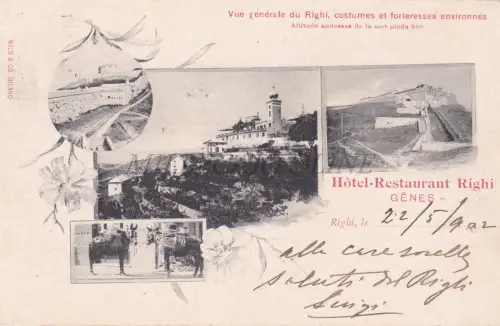 Vue générale du Righi, costumes et forteresses environnés
Altitude audessus de la mer pieds 800
MELO & CO. MILANO
Hôtel-Restaurant Righi
GÊNES
Righi, le 22/5/902
alle care sorelle
saluti del Righi
Luigi